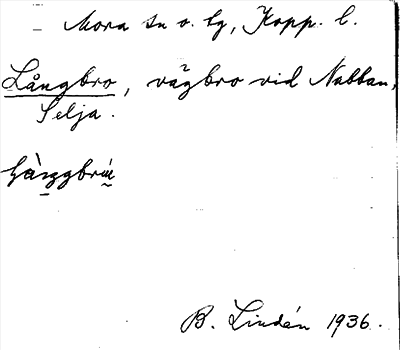 Mora sn o. by, Kopp. l.
Långbro, vägbro vid Nabban,
Selja.
B. Lindén 1936.